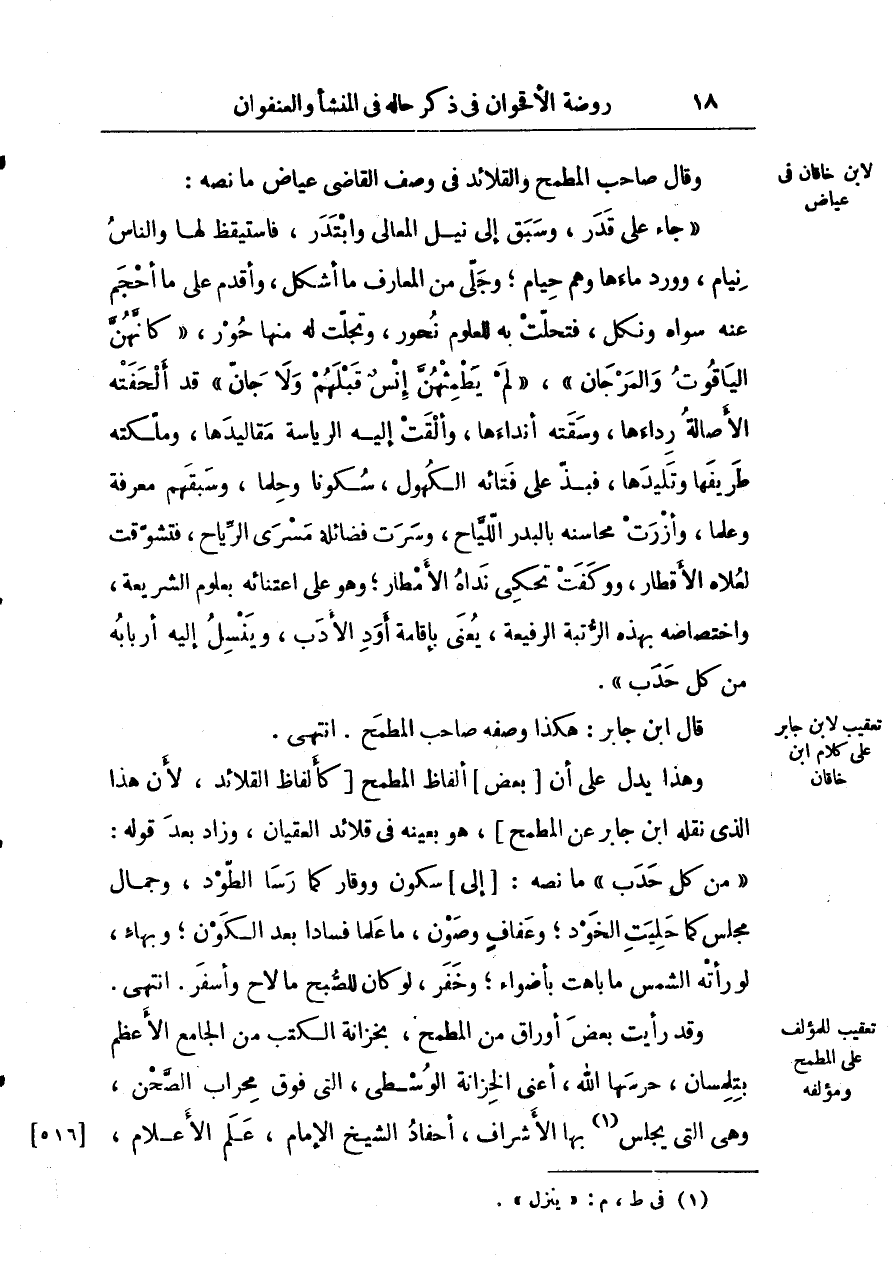 ١٨ روضة الأقحوان فى ذكر حاله فى المنشأ والعنفوان
لابن خاقان فى
عياض
وقال صاحب المطمح والقلائد فى وصف القاضى عياض ما نصه :
« جاء على قَدَر ، وسَبَق إلى نيـل المعالى وابْتَدَر ، فاستيقظ لهـا والناسُ
نِيام ، وورد ماءها وهم حِيام ؛ وجَلّى من المعارف ما أشكل ، وأقدم على ما أحْجَم
عنه سواه ونكل ، فتحلّتْ به للعلوم نُحور ، وتجلّت له منها حُوْر ، « كأنَّهُنَّ
اليَاقُوتُ وَالمَرْجَان » ، « لَمْ يَطْمِثْهُنَّ إِنْسٌ قَبْلَهُمْ وَلَا جَانّ » قد ألْحَفَتْه
الأصالةُ رِداءَها ، وسَقَته أنداءَها ، وألْقَتْ إليـه الرياسة مَقاليدَها ، وملّـكته
طَرِيفَها وتَلِيدَها ، فبـذّ على فَتائه الـكُهول ، سُـكونا وحِلما ، وسَبقَهم معرفة
وعلما ، وأزْرَتْ محاسنه بالبدر اللّيَّاح ، وسَرَت فضائله مَسْرَى الرِّياح ، فتشوّقت
لعُلاه الأقطار ، ووكَفَتْ تحكِى نَداهُ الأمْطار ؛ وهو على اعتنائه بعلوم الشريعة ،
واختصاصه بهذه الرُّتبة الرفيعة ، يُعْنَى بإقامة أوَدِ الأدَب ، ويَنْسِلُ إليه أربابُه
من كل حَدَب » .
تعقيب لابن جابر
على كلام ابن
خاقان
قال ابن جابر : هكذا وصفه صاحب المطمَح . انتهى .
وهذا يدل على أن [ بعض ] ألفاظ المطمح [ كألفاظ القلائد ، لأن هذا
الذى نقله ابن جابر عن المطمح ] ، هو بعينه فى قلائد العقيان ، وزاد بعدَ قوله :
« من كل حَدَب » ما نصه : [ إلى ] سكون ووقار كما رَسَا الطّوْد ، وجمـال
مجلس كما حَلِيَتِ الخَوْد ؛ وعَفافٍ وصَوْن ، ما عَلما فسادا بعد الـكَوْن ؛ وبهاء ،
لو رأتْه الشمس ما باهت بأضواء ؛ وخَفَر ، لو كان للصُّبح ما لاح وأسفَر . انتهى .
تعقيب للمؤلف
على المطمح
ومؤلفه
وقد رأيت بعضَ أوراق من المطمح ، بخزانة الـكتب من الجامع الأعظم
بتِلِمسان ، حرسَها الله ، أعنى الخِزانة الوُسْطى ، التى فوق مِحراب الصَّحْن ،
وهى التى يجلس (١) بها الأشراف ، أحفادُ الشيخ الإمام ، عَلَم الأعـلام ، [٥١٦]
(١) فى ط ، م : « ينزل » .